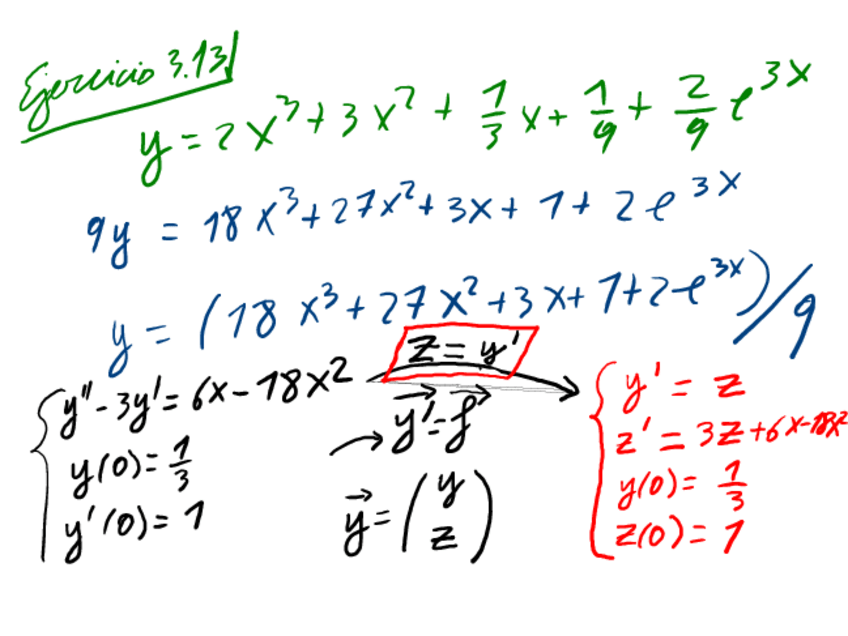 Ejercicio 3.13
y = 2x³ + 3x² + 1/3 x + 1/9 + 2/9 e^{3x}
9y = 18x³ + 27x² + 3x + 1 + 2e^{3x}
y = (18x³ + 27x² + 3x + 1 + 2e^{3x})/9
z = y'
y'' - 3y' = 6x - 18x²
y(0) = 1/3
y'(0) = 1
y⃗' = f⃗
y⃗ = (y
z)
y' = z
z' = 3z + 6x - 18x²
y(0) = 1/3
z(0) = 1